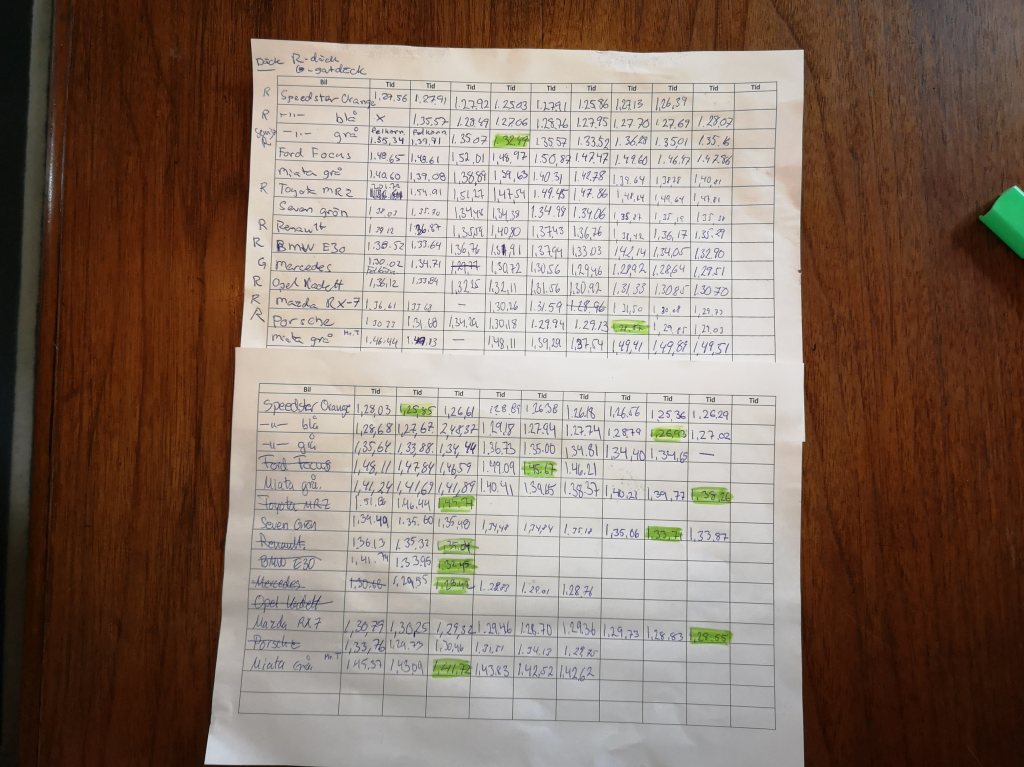 Däck R-däck
G-gatdäck
Bil Tid Tid Tid Tid Tid Tid Tid Tid Tid
R Speedster Orange 1.27.56 1.27.91 1.27.92 1.25.03 1.27.91 1.25.86 1.27.13 1.26,39
R -"- blå x 1,35,57 1.28.49 1.27.06 1.28.76 1.27.95 1.27.70 1.27.69 1.28.07
R -"- grå Felkörn 1.35,34 Felkörn 1.39,91 1.35.07 1.35.57 1.33,52 1.36.28 1.35.01
Ford Focus 1.48,65 1.48.61 1,52,01 1,48,97 1.50,87 1.47.47 1.49.60 1.46.47
Miata grå 1.40.60 1,39,08 1.38,89 1.39,63 1.40.31 1.42.78 1.39.64
R Toyota MR2 1.54.91 1,51,27 1.47,54 1.49.45 1.47.86 1.49,64 1.47.81
Seven grön 1.35.90 1,34,46 1.34,38 1.34.98 1.34.06
R Renault 1.39.12 1.40.80 1.37.43 1.36,76 1.36,17 1.35.29
R BMW E30 1.38.52 1.33.64 1.36,76 1.37.94 1,33,03 1.42,14 1,34,05 1.32.90
G Mercedes 1.30.02 1.34,71 1.30,72 1.30.56 1,29,46 1.28.92 1.28,64 1.29,51
R Opel Kadett Felkörn 1.38,12 1.33.84 1.32,25 1.32,11 1.31.56 1.30.92 1.31.33 1.30.85 1.30.70
R Mazda RX-7 1.36.61 1.33.68 – 1.30,26 1.31.59 1.28.96 1.31,50 1.29,73
R Porsche 1.30.77 1.31.68 1,34,29 1.30,18 1.29.94 1.29.13 1.29,03
Miata grå Mr.T 1.46.44 – 1,48,11 1,39,29 1,37,54 1,49,41 1,49,87 1,49,51
Bil Tid Tid Tid Tid Tid Tid Tid Tid Tid Tid
Speedster Orange 1,28,03 1,25,35 1,26,61 1.26.38 1.26.18 1.26.56 1.25.36 1.26.29
-"- blå 1,28,68 1.27,67 2,48,37 1.29.18 1.27.94 1.27.74 1.28,79 1,26,93 1,27.02
-"- grå 1,35,64 1.33,88 1.34,44 1.36,73 1.35.00 1.34.81 1.34,40 1.34,65 –
Ford Focus 1.48,11 1,47.84 1,46,59 1.49.09 1.45.67 1.46.21
Miata grå. 1,41,24 1,41,69 1,41,89 1.40.41 1.39.85 1.38.37 1.40,21 1.39,77 1.38,26
Toyota MR2 1.51.86 1.46.44 1.45.71
Seven Grön 1.34.49 1.35.60 1,35,48 1,34,48 1,34,84 1.35.18 1,35,06 1.33.71 1.33,87
Renault. 1.36.13 1.35.32 1.35.04
BMW E30 1.41.74 1.33.95 1.32.45
Mercedes 1.30.68 1,29,55 1.28.83 1.29.01 1.28.76
Opel Kadett
Mazda RX7 1,30,79 1,30,25 1,29,32 1.29.46 1.28.70 1.29.36 1.29,73 1.28.83 1.28.55
Porsche 1,33,76 1.29.73 1.30,46 1.31,51 1.34.13
Miata Grå Mr.T 1.45.37 1.43.09 1.41.72 1.43.83 1.42,52 1.42,62